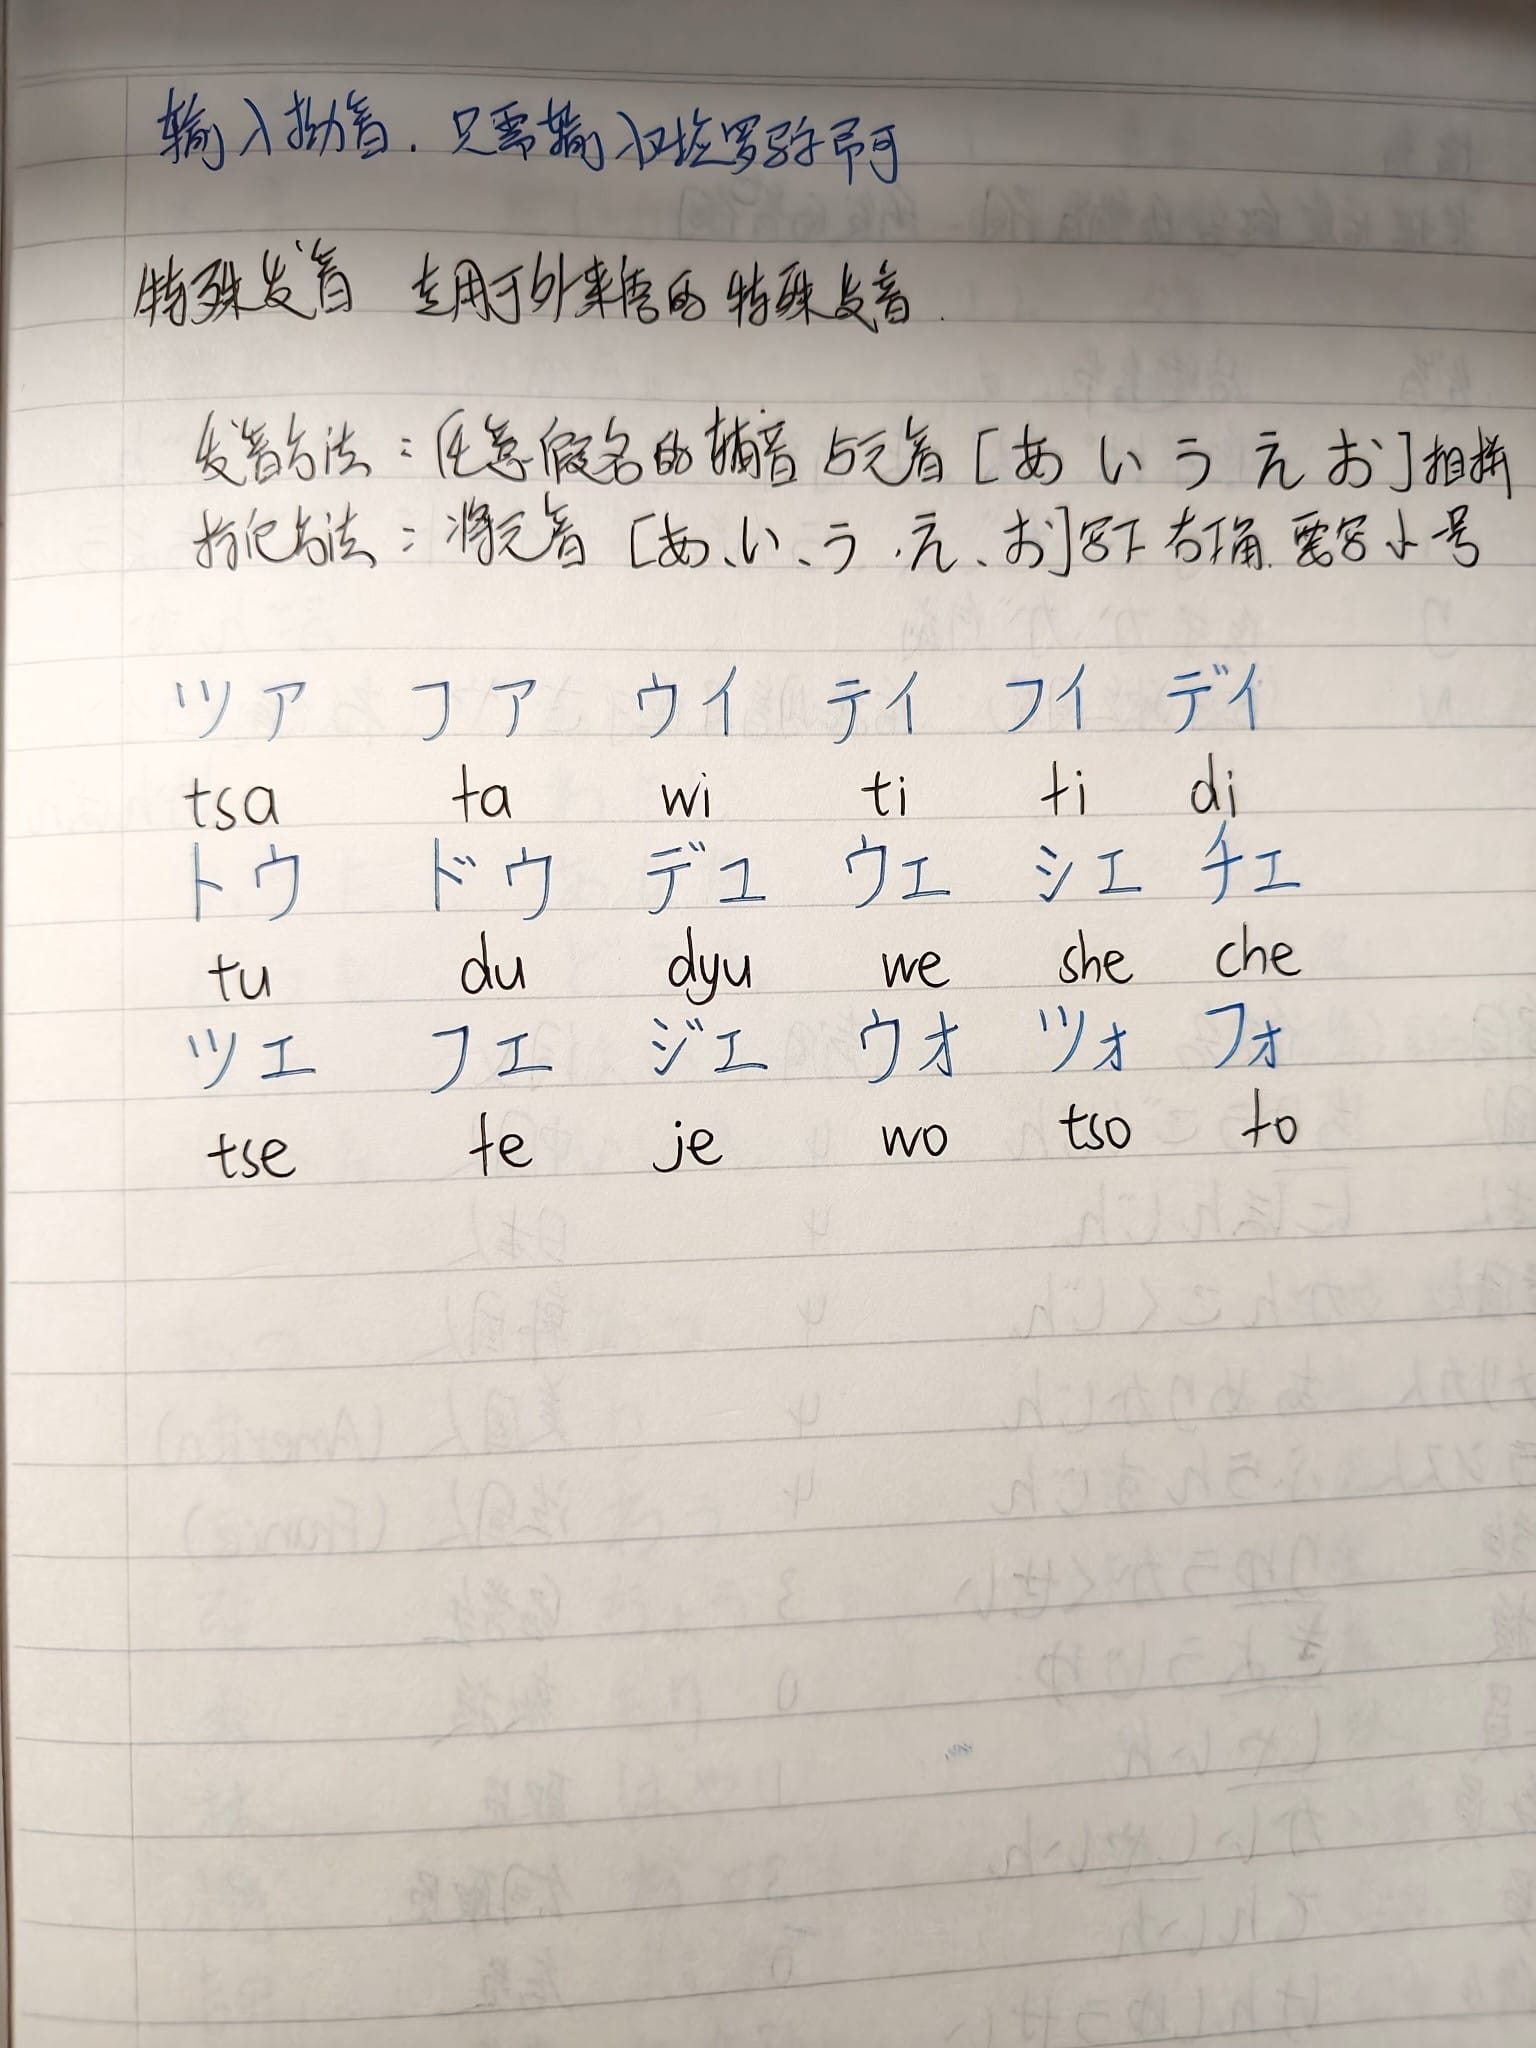 输入拗音.只需输入对应罗马字即可
特殊发音 专用于外来语的特殊发音.
发音方法:任意假名的辅音与元音[あいうえお]相拼
书记方法:将元音[あ、い、う、え、お]写下右下角.要写小号
ツァ ファ ウィ ティ フィ ディ
tsa fa wi ti fi di
トゥ ドゥ デュ ウェ シェ チェ
tu du dyu we she che
ツェ フェ ジェ ウォ ツォ フォ
tse fe je wo tso fo